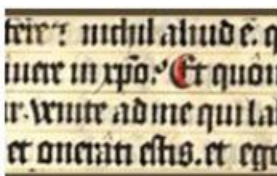 ⁊ nichil aliud ē. q
uere in xp̄o. Et quōn
r. venite ad me qui la
et onerati estis. et ego